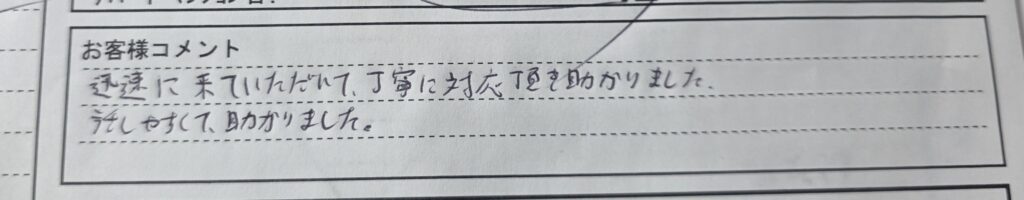 お客様コメント
迅速に来ていただいて、丁寧に対応頂き助かりました。
話しやすくて、助かりました。